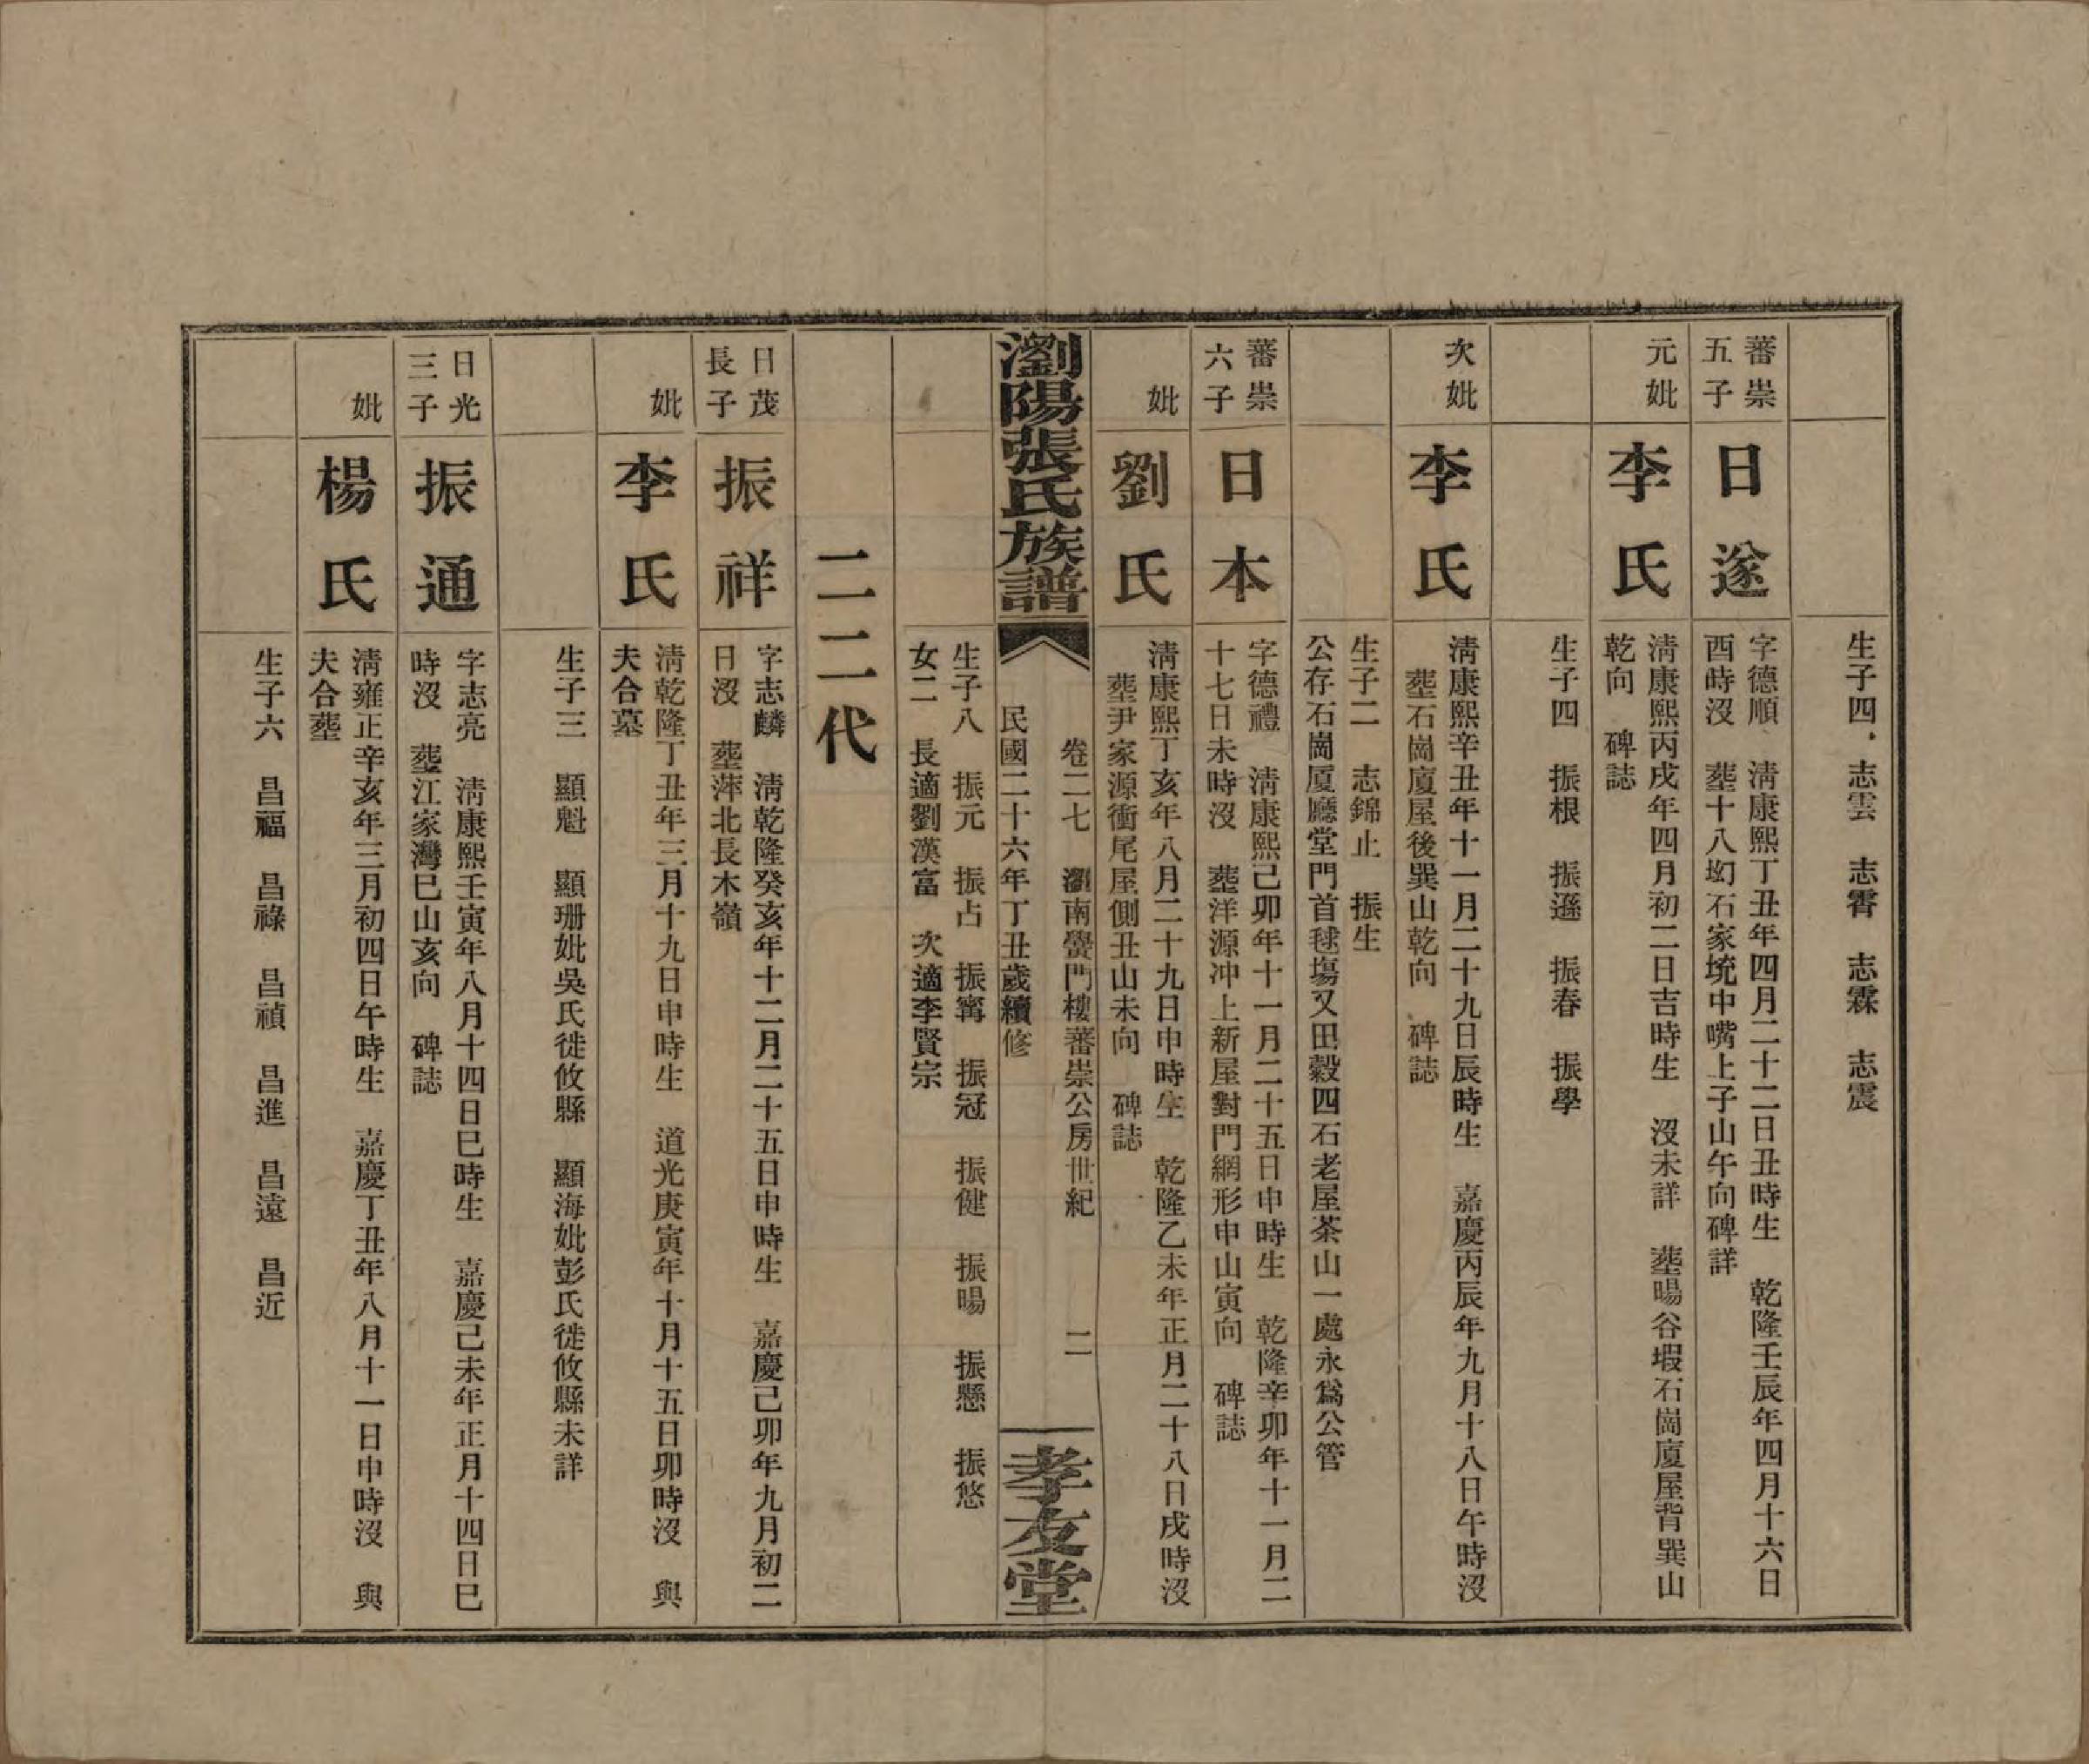 生子四、志雲　志霄　志霖　志震
蕃崇
五子
日遂
字德順　淸康熙丁丑年四月二十二日丑時生　乾隆壬辰年四月十六日
酉時沒　塟十八㘭石家垸中嘴上子山午向碑詳
元妣
李氏
淸康熙丙戌年四月初二日吉時生　沒未詳　塟暘谷塅石崗廈屋背巽山
乾向　碑誌
生子四　振根　振遜　振春　振學
次妣
李氏
淸康熙辛丑年十一月二十九日辰時生　嘉慶丙辰年九月十八日午時沒
塟石崗廈屋後巽山乾向　碑誌
生子二　志錦止　振生
公存石崗厦廳堂門首毬塲又田穀四石老屋茶山一處永爲公管
蕃崇
六子
日本
字德禮　淸康熙己卯年十一月二十五日申時生　乾隆辛卯年十一月二
十七日未時沒　塟洋源冲上新屋對門網形申山寅向　碑誌
妣
劉氏
淸康熙丁亥年八月二十九日申時生　乾隆乙未年正月二十八日戌時沒
塟尹家源衝尾屋側丑山未向　碑誌
瀏陽張氏族譜
卷二七　瀏南礐門樓蕃崇公房世紀　二
民國二十六年丁丑歲續修
孝友堂
生子八　振元　振占　振寗　振冠　振健　振暘　振懸　振悠
女二　長適劉漢富　次適李賢宗
二二代
日茂
長子
振祥
字志麟　淸乾隆癸亥年十二月二十五日申時生　嘉慶己卯年九月初二
日沒　塟萍北長木嶺
妣
李氏
淸乾隆丁丑年三月十九日申時生　道光庚寅年十月十五日卯時沒　與
夫合墓
生子三　顯魁　顯珊妣吳氏徙攸縣　顯海妣彭氏徙攸縣未詳
日光
三子
振通
字志亮　淸康熙壬寅年八月十四日巳時生　嘉慶己未年正月十四日巳
時沒　塟江家灣巳山亥向　碑誌
妣
楊氏
淸雍正辛亥年三月初四日午時生　嘉慶丁丑年八月十一日申時沒　與
夫合塟
生子六　昌福　昌祿　昌禎　昌進　昌遠　昌近